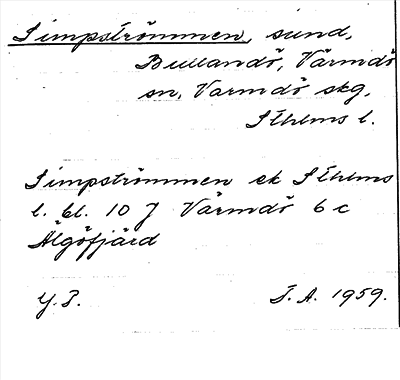 Simpströmmen, sund,
Bullandö, Värmdö
sn, Värmdö skg,
Sthlms l.
Simpströmmen ek Sthlms
l. bl. 10 J Värmdö 6 c
Älgöfjärd
Y. P. S. A. 1959.